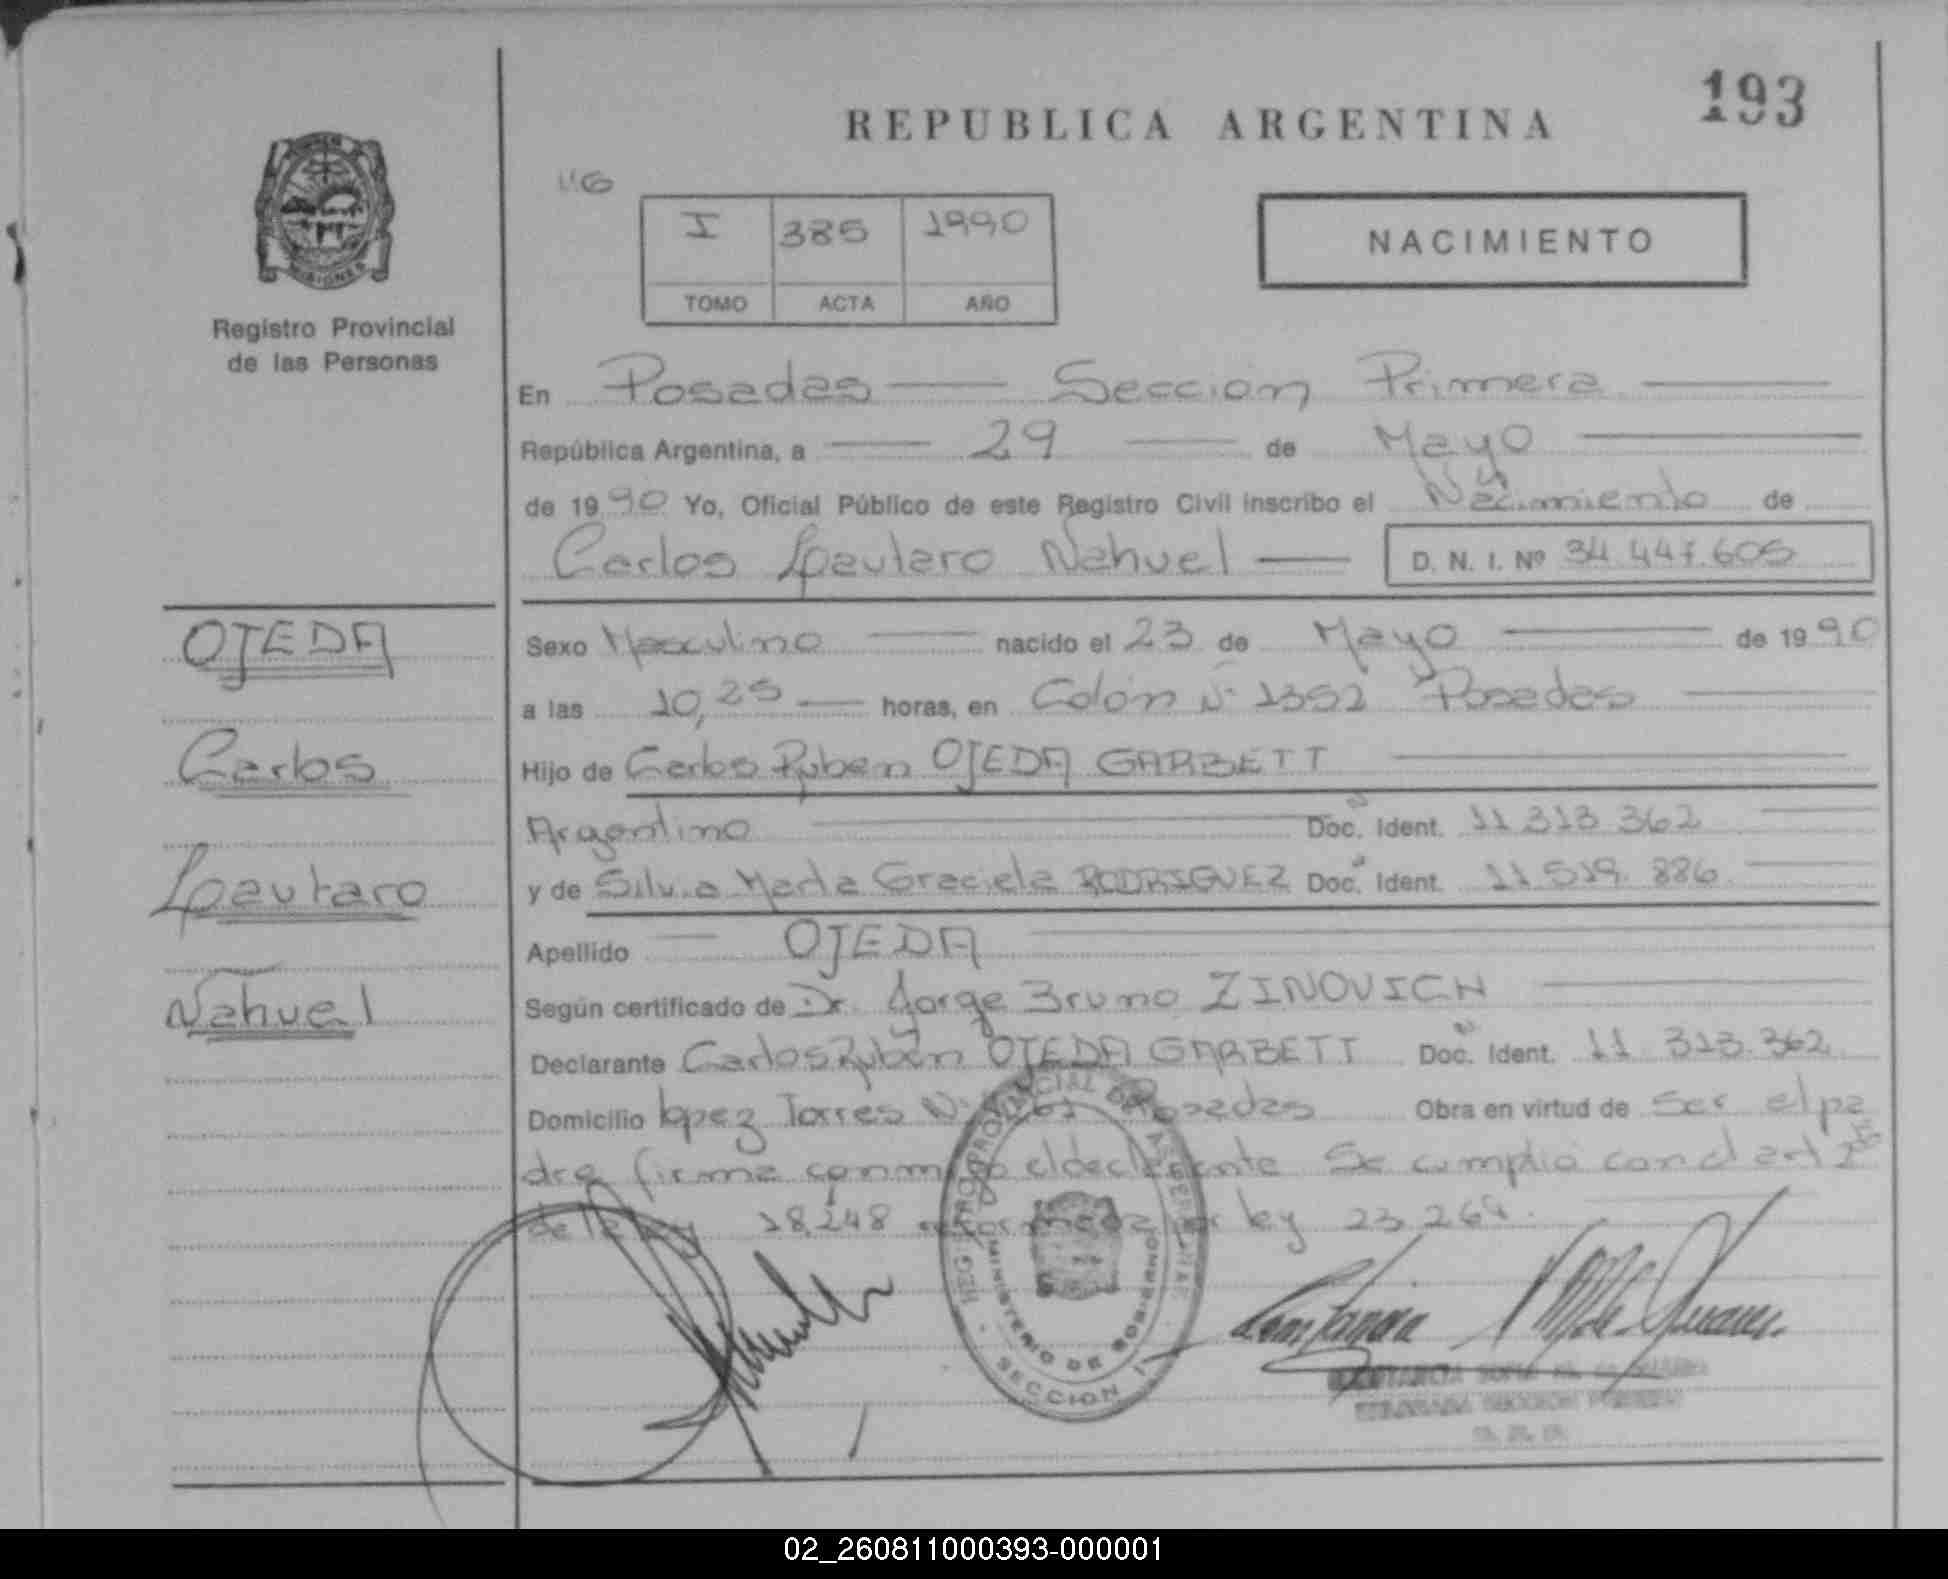 193
REPUBLICA ARGENTINA
MISIONES
Registro Provincial
de las Personas
I 385 1990
TOMO ACTA AÑO
NACIMIENTO
En Posadas Sección Primera
República Argentina, a 29 de Mayo
de 1990 Yo, Oficial Público de este Registro Civil inscribo el Nacimiento de
Carlos Lautaro Nahuel D. N. I. Nº 34.447.605
OJEDA
Carlos
Lautaro
Nahuel
Sexo Masculino nacido el 23 de Mayo de 1990
a las 10,25 horas, en Colón Nº 1352 Posadas
Hijo de Carlos Ruben OJEDA GARBETT
Argentino Doc. Ident. 11.313.362
y de Silvia Marta Graciela RODRIGUEZ Doc. Ident. 11.519.886
Apellido OJEDA
Según certificado de Dr. Jorge Bruno ZINOVICH
Declarante Carlos Rubén OJEDA GARBETT Doc. Ident. 11.313.362
Domicilio lopez Torres Nº Posadas Obra en virtud de Ser el pa
dre firma conmigo el declarante Se cumplió con el art 2do
de la ley 18.248 reformada por ley 23.264.
REGISTRO PROVINCIAL DE LAS PERSONAS
MINISTERIO DE GOBIERNO
SECCION 1
02_260811000393-000001